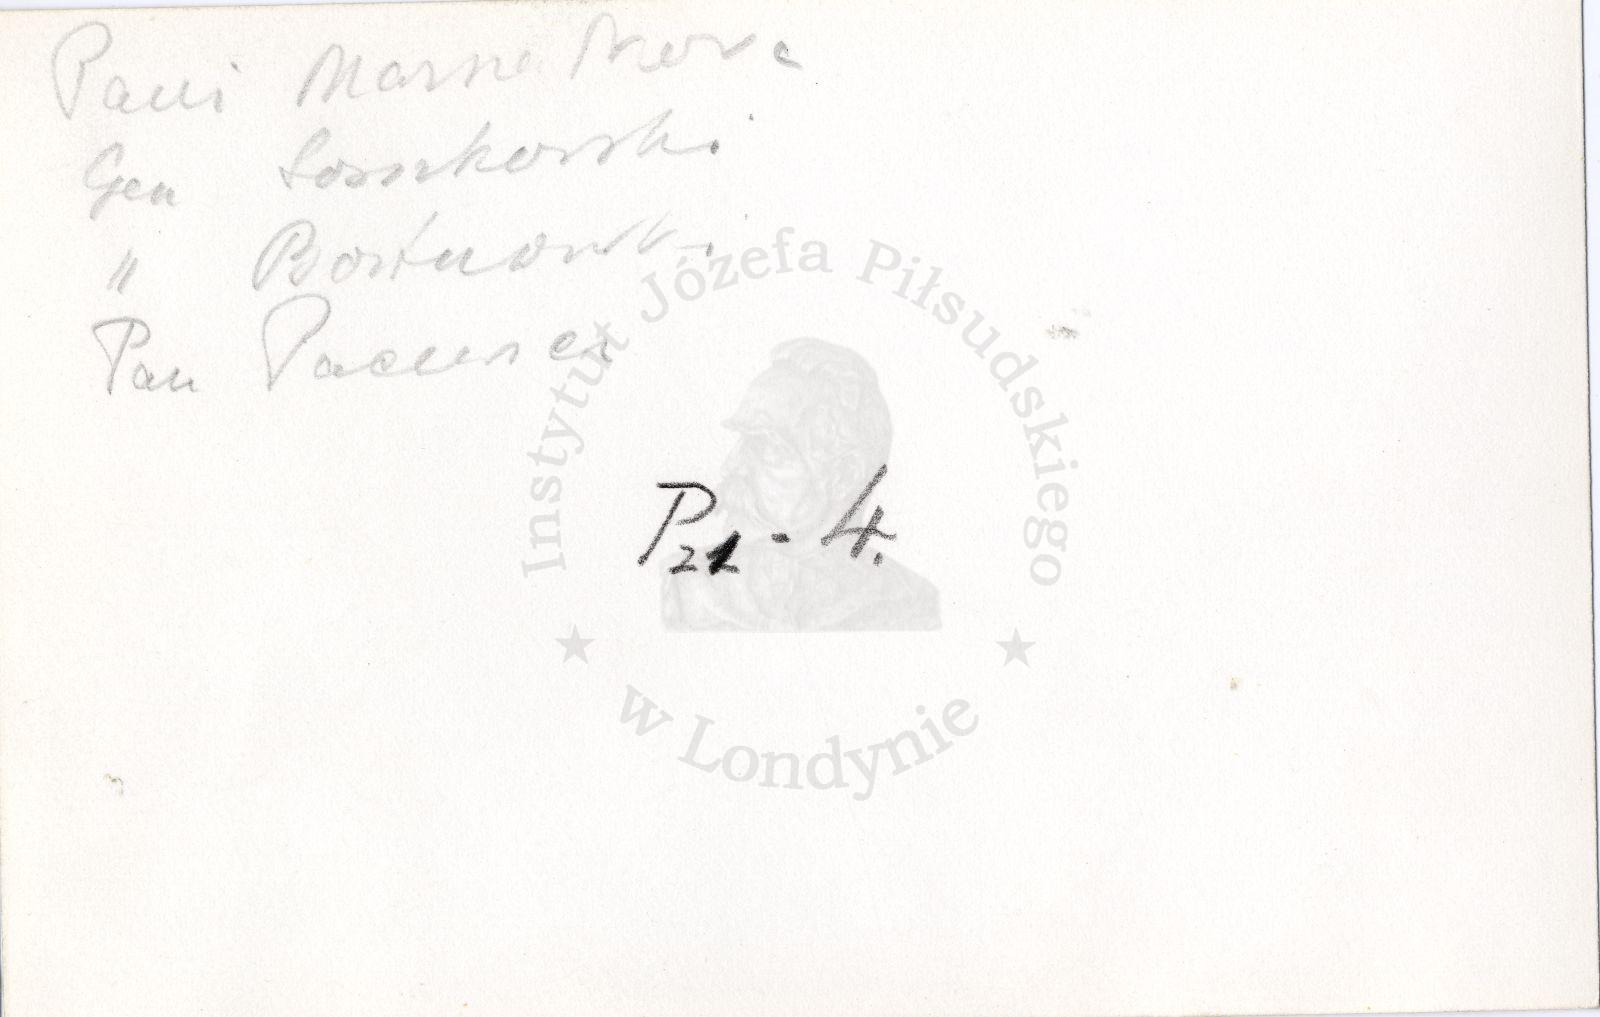 Pani Marszałkowa
Gen Sosnkowski
" Bortnowski
Pan
P21 - 4.
Instytut Józefa Piłsudskiego
★ ★
w Londynie